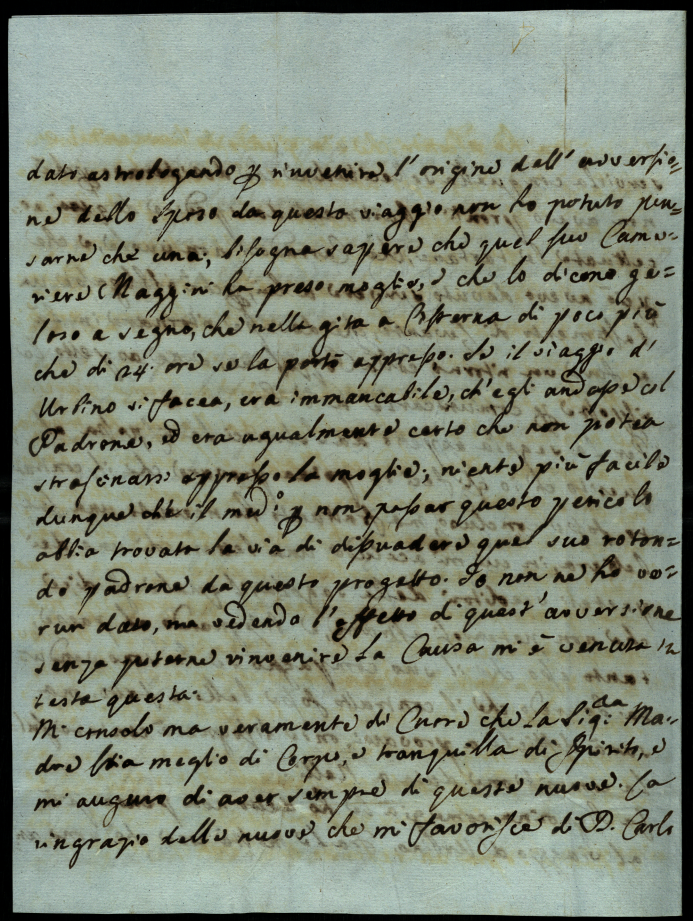 dato astrologando p rinvenire l'origine dell'avversio=
ne dello Sposo da questo viaggio non ho potuto pen=
sarne che una; bisogna sapere che quel suo Came=
riere Maggini ha preso moglie, e che lo dicono ge=
loso a segno, che nella gita a Cisterna di poco più
che di 24. ore se la portò appresso. Se il viaggio d'
Urbino si facea, era immancabile, ch'egli andasse col
Padrone, ed era ugualmente certo che non potea
strascinarsi appresso la moglie; niente più facile
dunque che il med.o p non passar questo pericolo
abbia trovata la via di dissuadere quel suo roton=
do padrone da questo progetto. Io non ne ho ve=
run dato, ma vedendo l'effetto di quest'avversione
senza poterne rinvenire la Causa mi è venuta in
testa questa.
Mi consolo ma veramente di Cuore che la Sig.ra Ma=
dre stia meglio di Corpo, e tranquilla di Spirito, e
mi auguro di aver sempre di queste nuove. La
ringrazio delle nuove che mi favorisce di D. Carlo